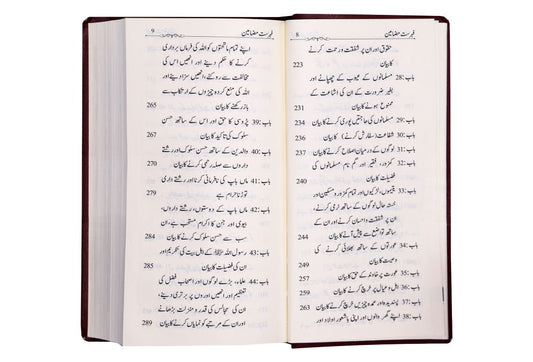 فہرست مضامین
8
حقوق اور ان پر شفقت و رحمت کرنے
کا بیان 223
باب :28 مسلمانوں کے عیوب کے چھپانے اور
بغیر ضرورت کے ان کی اشاعت کے
ممنوع ہونے کا بیان 231
باب :29 مسلمانوں کی حاجتیں پوری کرنے کا بیان 234
باب :30 شفاعت (سفارش کرنے) کا بیان 236
باب :31 لوگوں کے درمیان اصلاح کرنے کا بیان 237
باب :32 کمزور، فقیر اور گم نام مسلمانوں کی
فضیلت کا بیان 240
باب :33 یتیموں، لڑکیوں اور تمام کمزور و مسکین اور
خستہ حال لوگوں کے ساتھ نرمی کرنے،
ان پر شفقت و احسان کرنے اور ان کے
ساتھ تواضع سے پیش آنے کا بیان 244
باب :34 عورتوں کے ساتھ بھلائی کرنے کی
وصیت کا بیان 249
باب :35 عورت پر خاوند کے حق کا بیان 257
باب :36 اہل و عیال پر خرچ کرنے کا بیان 259
باب :37 پسندیدہ اور عمدہ چیزیں خرچ کرنے کا بیان 263
باب :38 اپنے گھر والوں اور اپنی باشعور اولاد اور
فہرست مضامین
9
اپنے تمام ماتحتوں کو اللہ کی فرماں برداری
کرنے کا حکم دینے اور انھیں اس کی
مخالفت سے روکنے، انھیں سزا دینے اور
اللہ کی منع کردہ چیزوں کے ارتکاب سے
باز رکھنے کا بیان 265
باب :39 پڑوسی کا حق اور اس کے ساتھ حسن
سلوک کی تاکید کا بیان 267
باب :40 والدین کے ساتھ حسن سلوک اور رشتے
داروں سے صلہ رحمی کرنے کا بیان 270
باب :41 ماں باپ کی نافرمانی کرنا اور رشتے داری
توڑنا حرام ہے 279
باب :42 ماں باپ کے دوستوں، رشتے داروں،
بیوی اور جن کا اکرام مستحب ہے، ان
سب سے حسن سلوک کرنے کا بیان 284
باب :43 رسول اللہ ﷺ کے اہل بیت کی تکریم اور
ان کی فضیلت کا بیان 285
باب :44 علماء، بڑے لوگوں اور اصحاب فضل کی
تعظیم اور انھیں دوسروں پر برتری دینے،
ان کی مجالس کی قدر و منزلت بڑھانے
اور ان کے مرتبے کو نمایاں کرنے کا بیان 289